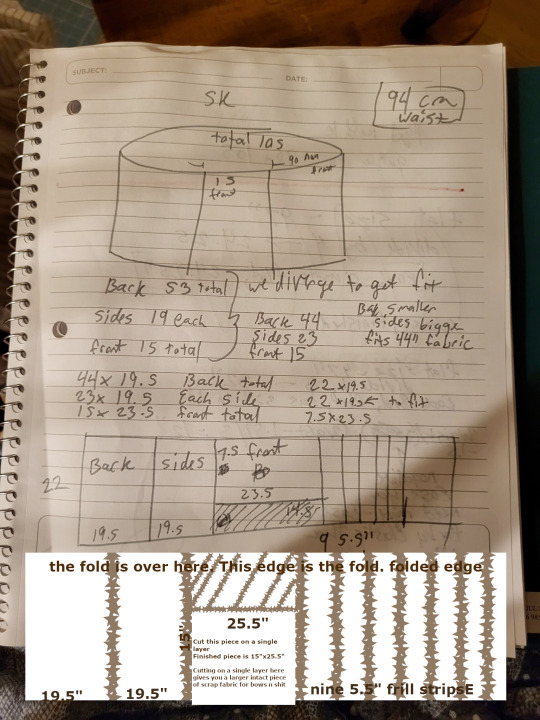 SUBJECT:
DATE:
SK
94 cm
waist
total 105
90 non
front
15
front
Back 53 total
we diverge to get fit
sides 19 each
Back 44
Back smaller
sides 23
sides bigge
front 15 total
front 15
fits 44" fabric
44 x 19.5 Back total 22 x 19.5
23 x 19.5 Each side 22 x 19.5 ← to fit
15 x 23.5 front total 7.5 x 23.5
Back
sides
7.5 front
22
23.5
14.5
19.5
19.5
9 5.5"
the fold is over here. This edge is the fold. folded edge
25.5"
15"
Cut this piece on a single
layer
Finished piece is 15"x25.5"
Cutting on a single layer here
gives you a larger intact piece
of scrap fabric for bows n shit
19.5"
19.5"
nine 5.5" frill stripsE